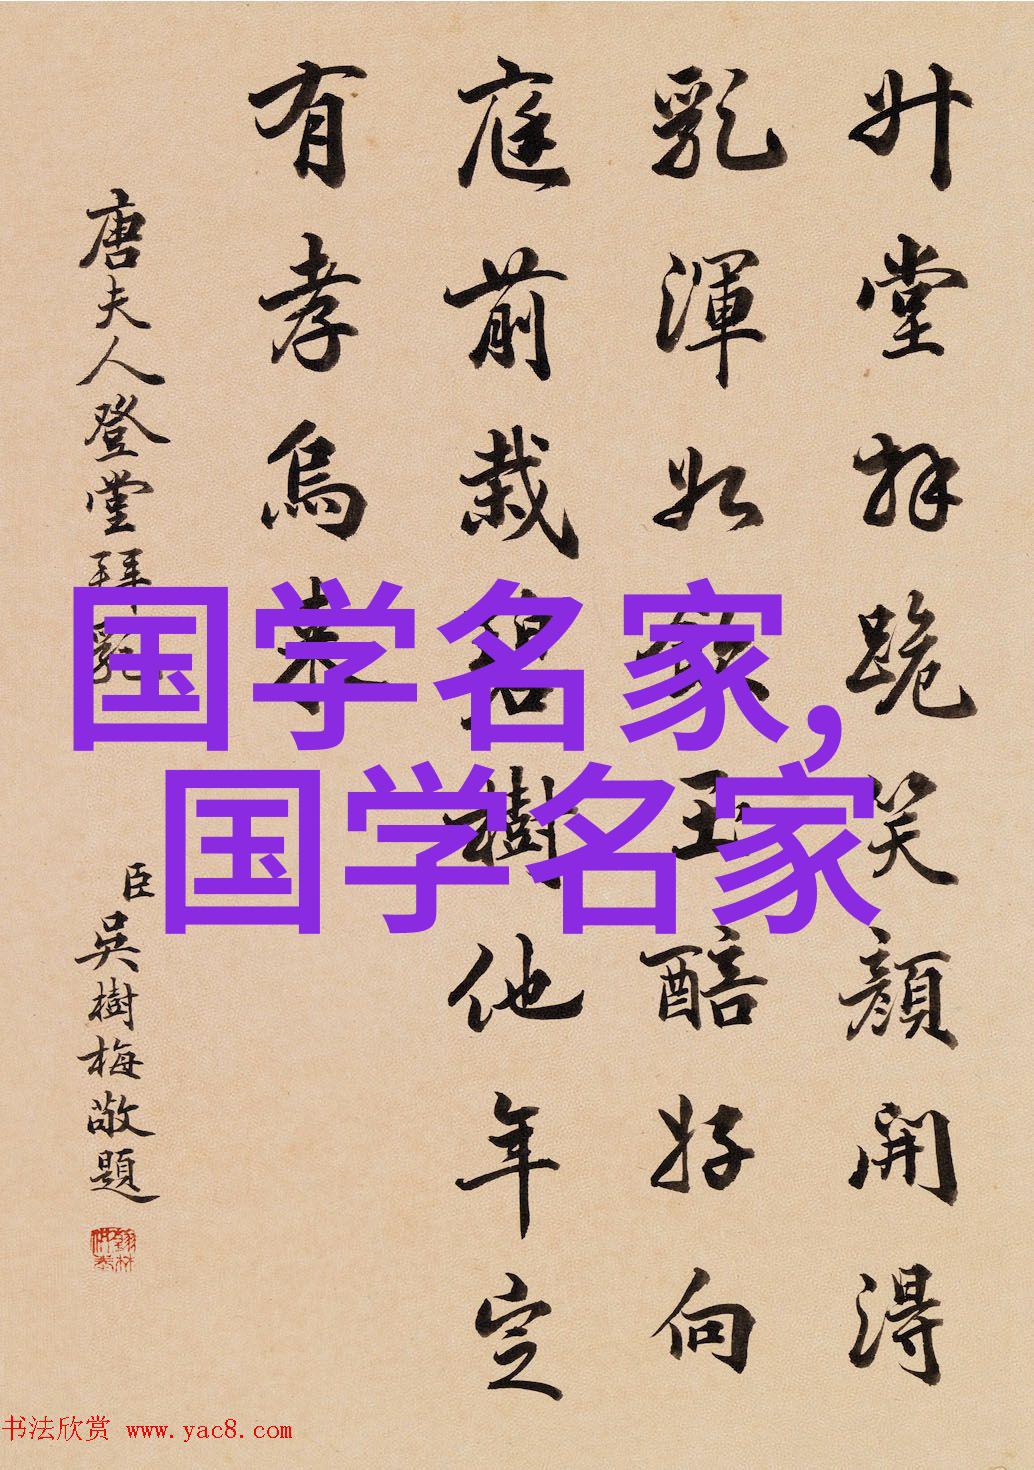 升堂拜跪笑顏開得
乳渾如飲玉醅好向
庭前栽碧樹他年定
有孝烏來
唐夫人登堂拜乳
臣吳樹梅敬題
国学名家,
国学名家
书法欣赏 www.yac8.com